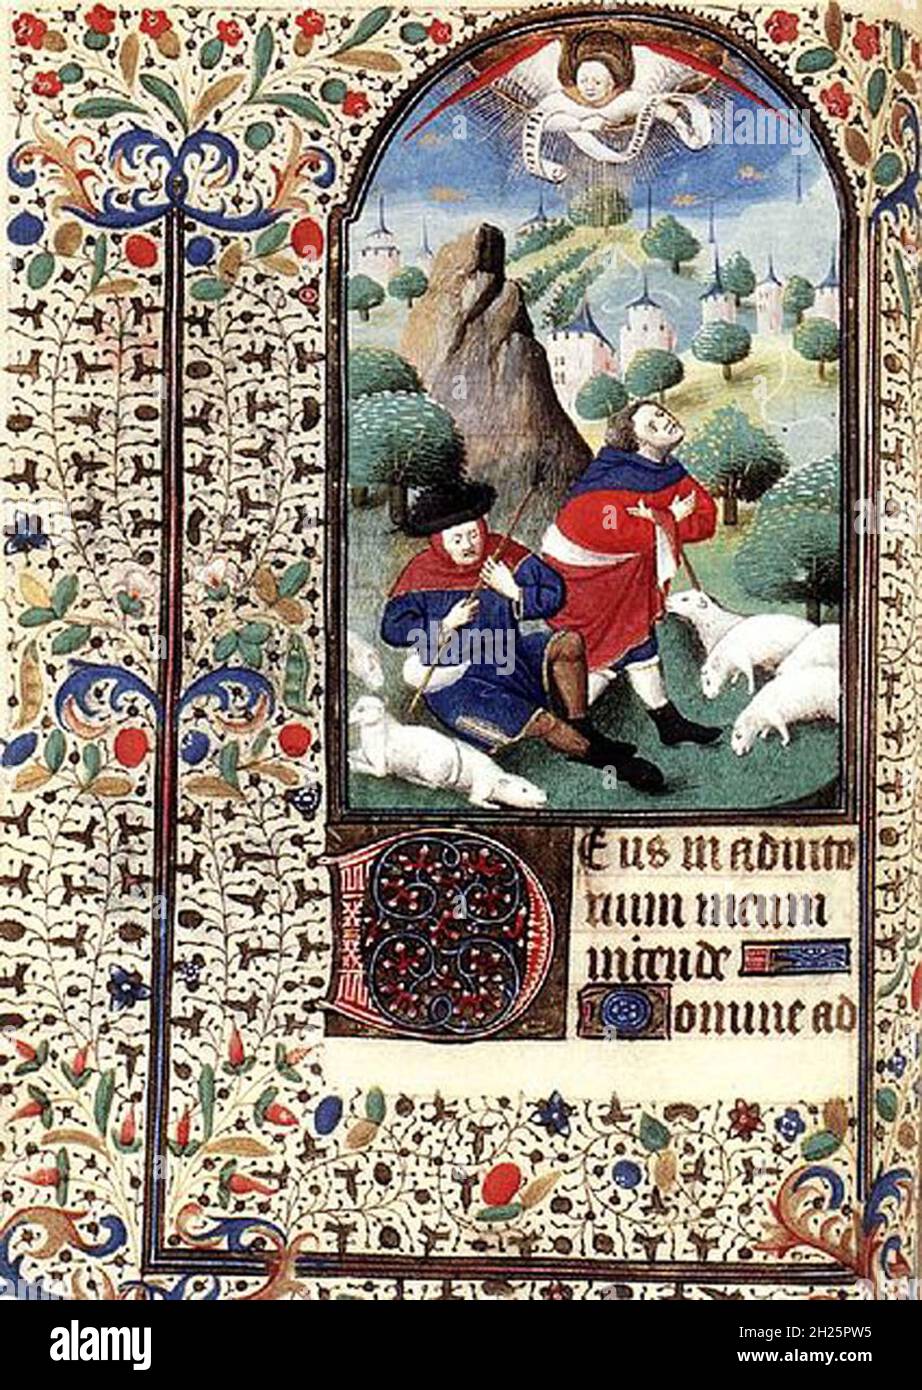 Deus in adiuto
rium meum
intende
Domine ad
alamy
Image ID: 2H25PW5
www.alamy.com